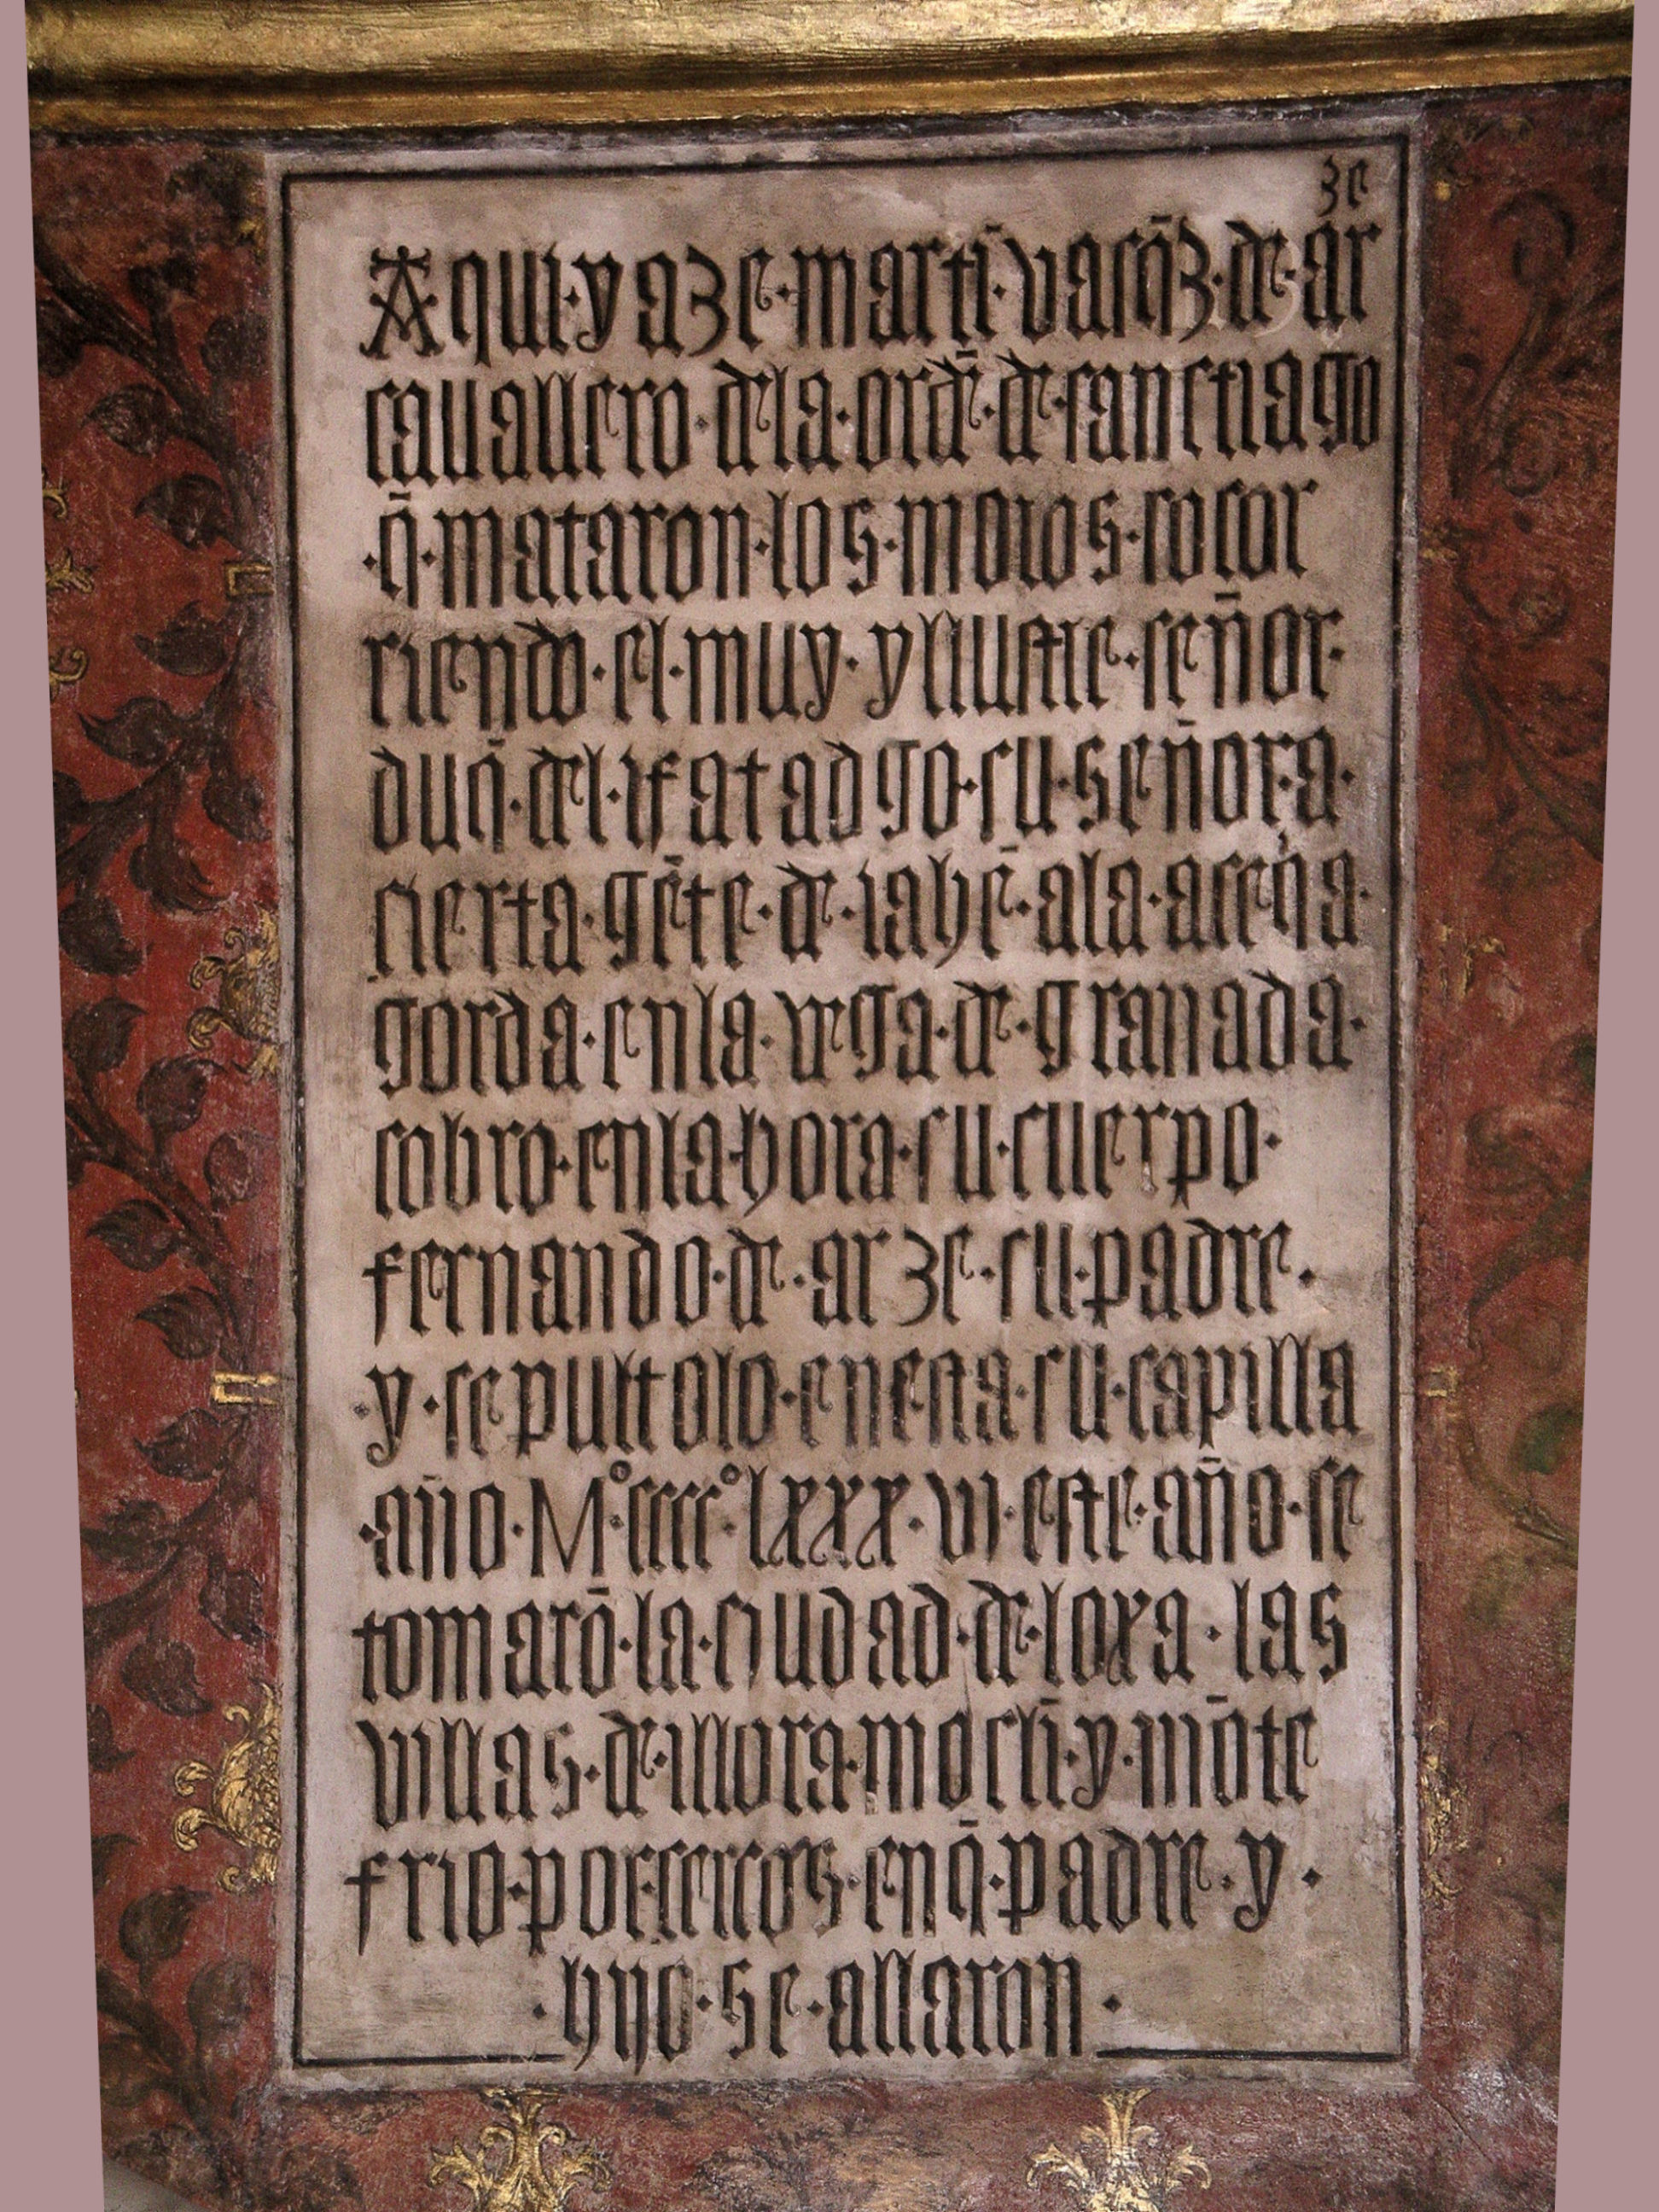 ze
Aqui·yaze·martī·vasq̄z·de·ar
cauallero·dela·ordē·de·sanctiago
·q̄·mataron·los·moros·socor
riendo·el·muy·yllustre·señor·
duq̄·del·īfātadgo·su·señor·a·
cierta·gēte·de·iahē·ala·aceq̄a·
gorda·enla·vega·de·granada·
cobro·enla·hora·su·cuerpo·
fernando·de·arze·su·padre·
·y·sepultolo·enesta·su·capilla
·año·Mº·ccccº·lxxx·vi·este·año·se
tomarō·la·ciudad·de·loxa·las
villas·de·illora·moclī·y·mōte
frio·por·cercos·enq̄·padre·y·
·hijo·se·allaron·